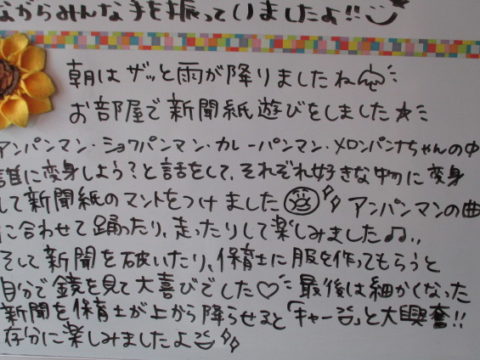 ながらみんな手を振っていましたよ!!
朝はザッと雨が降りましたね
お部屋で新聞紙遊びをしました☆
アンパンマン・ショクパンマン・カレーパンマン・メロンパンナちゃんの中
誰に変身しよう?と話をして、それぞれ好きな物に変身
して新聞紙のマントをつけました アンパンマンの曲
に合わせて踊ったり、走ったりして楽しみました♫..
そして新聞を破いたり、保育士に服を作ってもらうと
自分で鏡を見て大喜びでした♡ 最後は細かくなった
新聞を保育士が上から降らせると「キャー」と大興奮!!
存分に楽しみましたよ